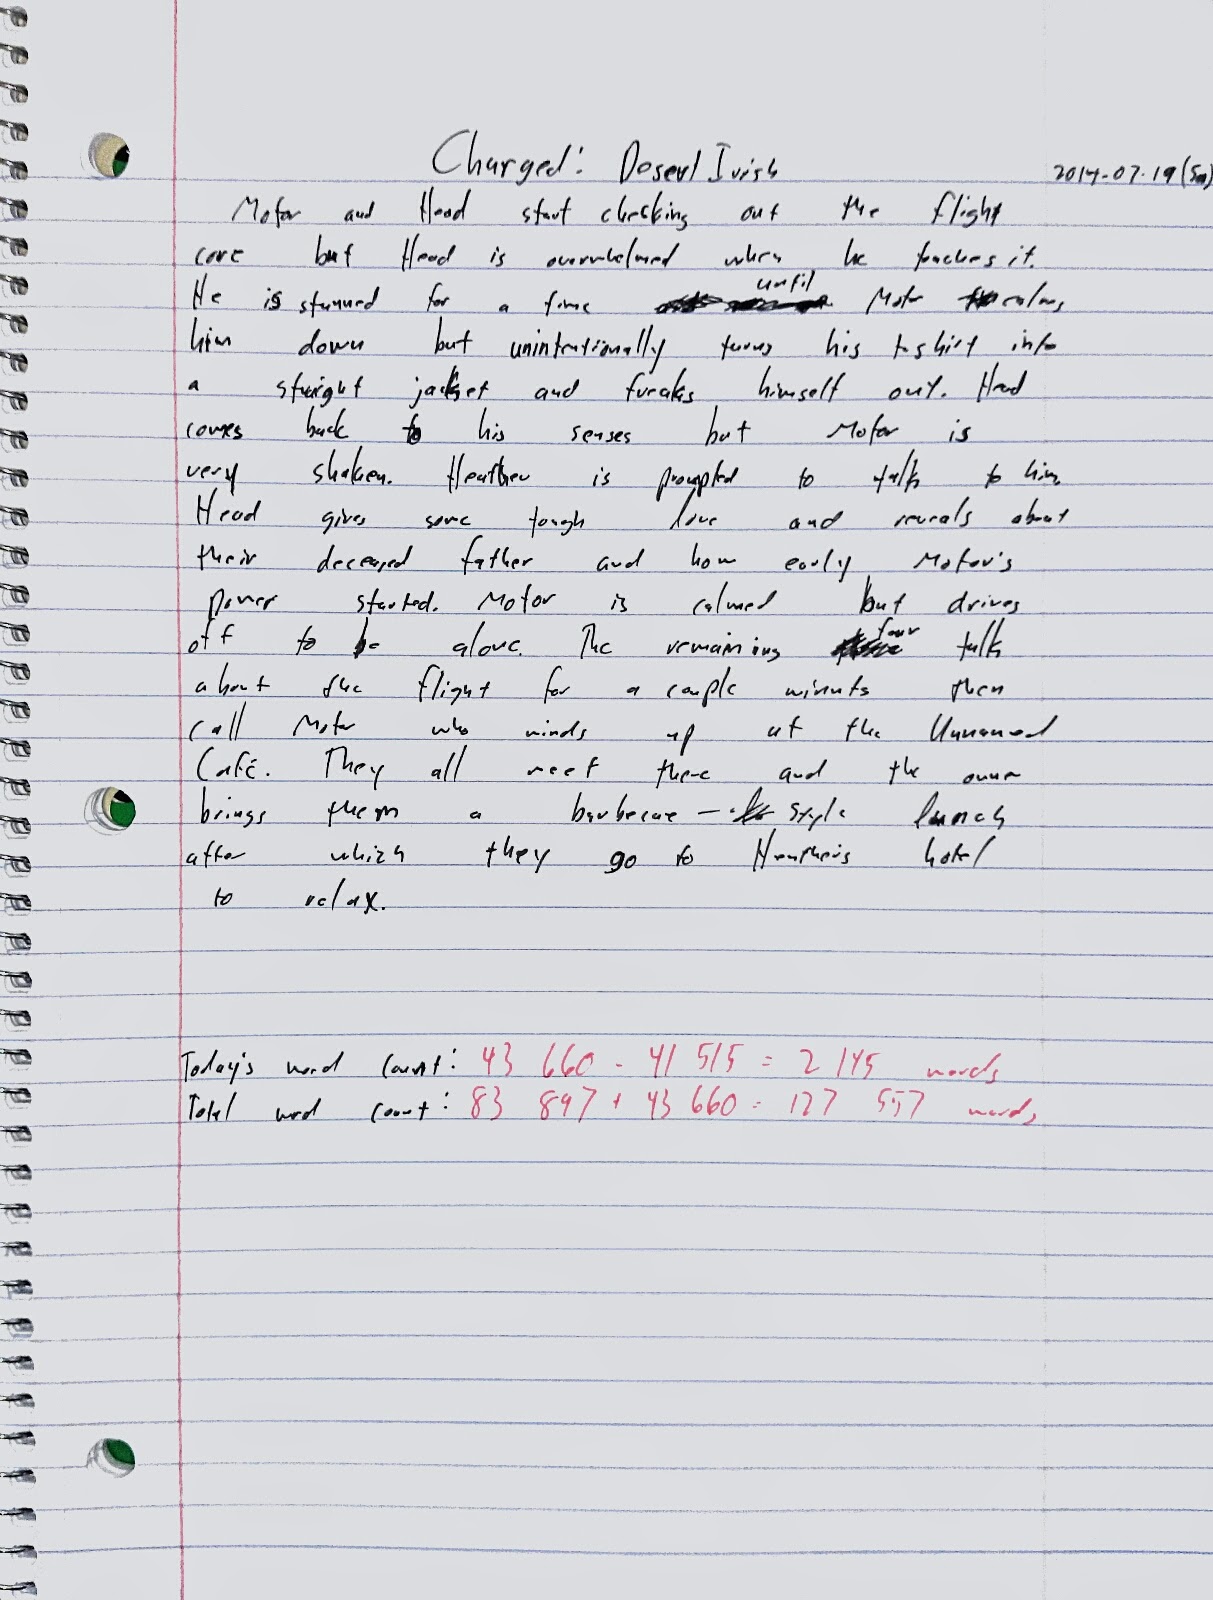 Charged: Desert Irish
2014-07-19 (Sa)
Motor and Head start checking out the flight
core but Head is overwhelmed when he touches it.
He is stunned for a time until Motor calms
him down but unintentionally turns his t-shirt into
a straight jacket and freaks himself out. Head
comes back to his senses but Motor is
very shaken. Heather is prompted to talk to him.
Head gives some tough love and reveals about
their deceased father and how early Motor's
power started. Motor is calmed but drives
off to be alone. The remaining four talk
about the flight for a couple minuts then
call Motor who winds up at the Unnamed
Café. They all meet there and the owner
brings them a barbecue-style lunch
after which they go to hotel
to relax.
Today's word count: 43 660 - 41 515 = 2 145 words
Total word count: 83 897 + 43 660 = 127 557 words